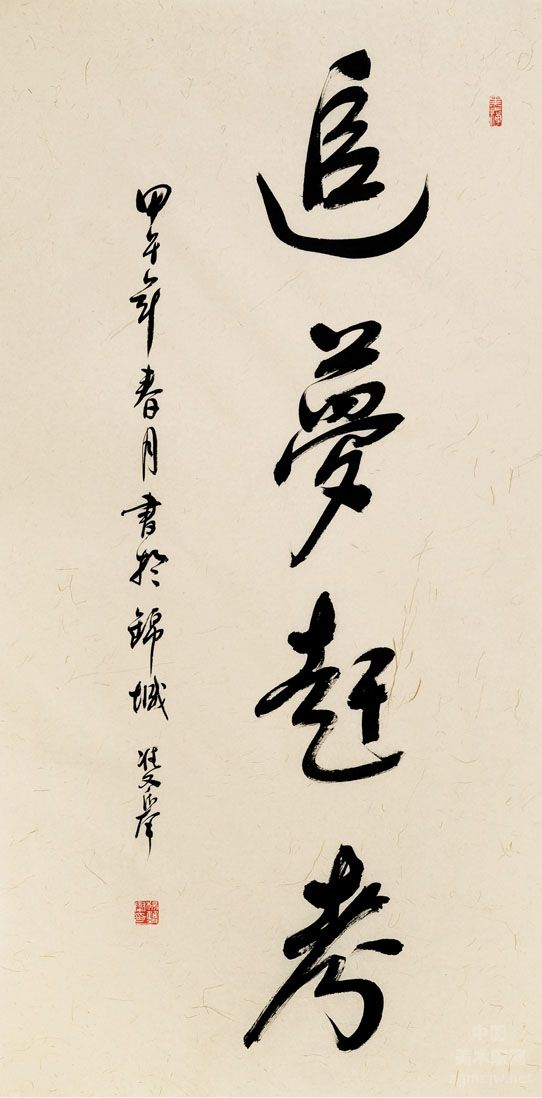 追夢赶考
甲午年春月書於錦城